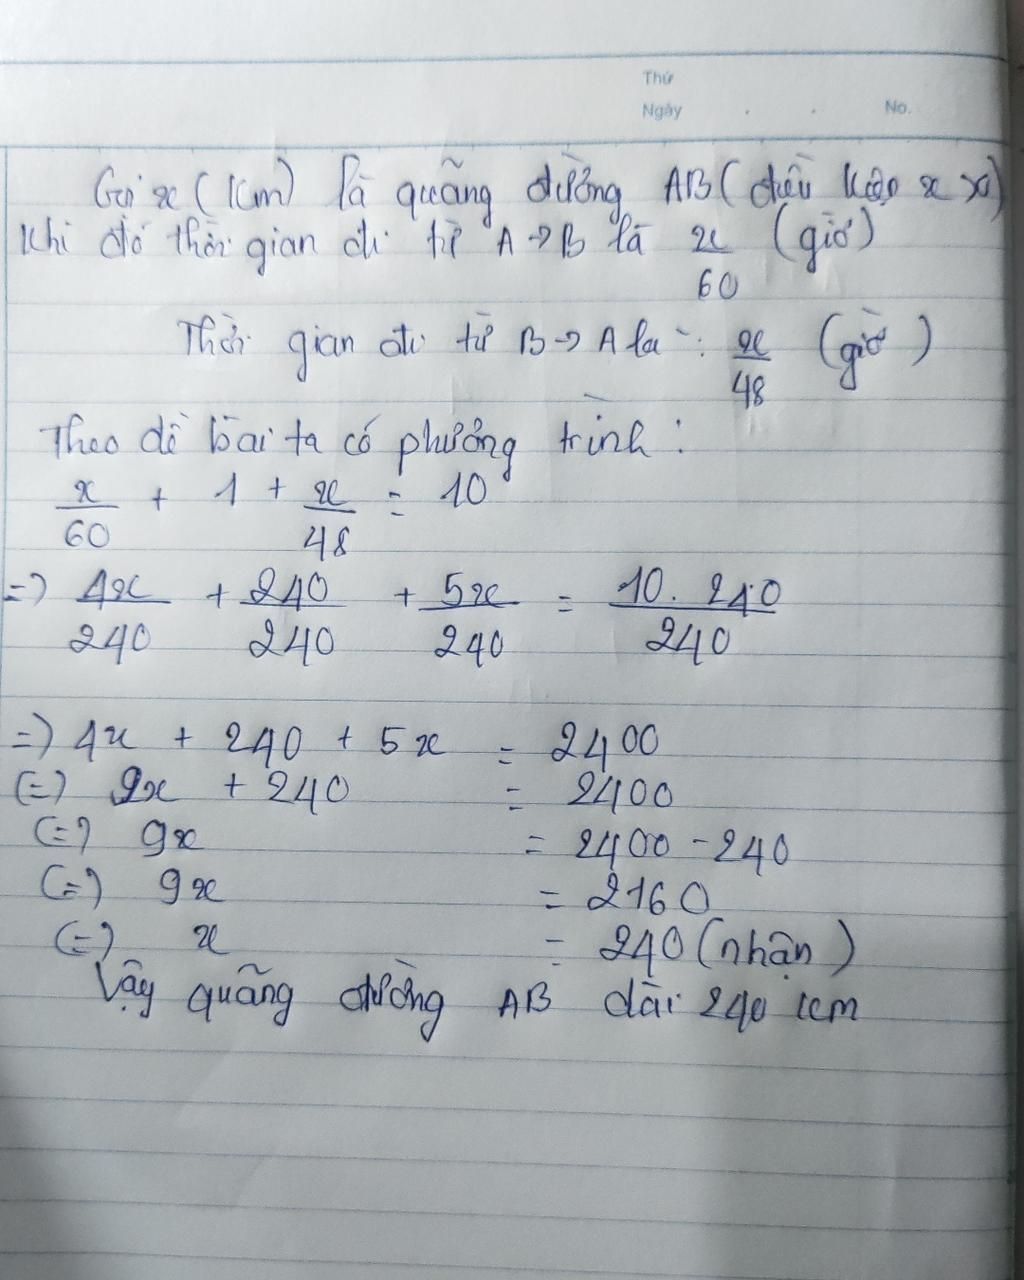 Thứ
Ngày . . No.
Gọi x (km) là quãng đường AB (điều kiện x >0)
Khi đó thời gian đi từ A → B là x/60 (giờ)
Thời gian đi từ B → A là : x/48 (giờ)
Theo đề bài ta có phương trình :
x/60 + 1 + x/48 = 10
=> 4x/240 + 240/240 + 5x/240 = 10.240/240
=> 4x + 240 + 5x = 2400
(=) 9x + 240 = 2400
(=) 9x = 2400 - 240
(=) 9x = 2160
(=) x = 240 (nhận)
Vậy quãng đường AB dài 240 km